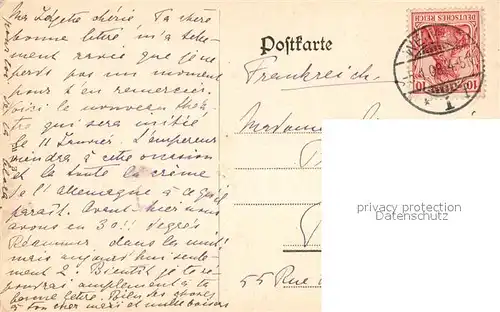 Ma Zézette chérie. Ta chère
bonne lettre m'a telle-
ment ravie que je ne
perds pas un moment
pour t'en remercier.
Voici le nouveau théâ-
tre qui sera
le 11 Janvier. L'empereur
viendra à cette occasion
et la toute la crème
de l'Allemagne à ce qu'il
paraît. Avant hier nous
avons eu 30!! degrés
Réaumur, dans la nuit
mais aujourd'hui seule-
ment 2. Bientôt je te ré-
pondrai amplement à ta
bonne lettre. Bien des choses
à ton cher mari et mille baisers
Postkarte
Frankreich.
Madame
55 Rue
DEUTSCHES REICH
10 10
privacy protection
Datenschutz